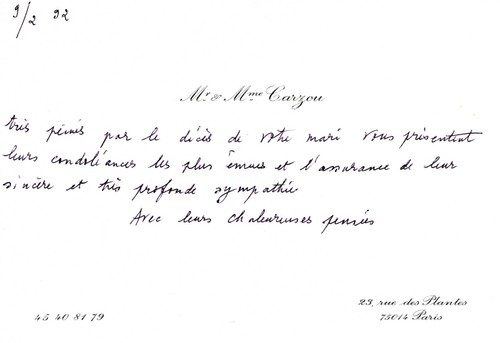 9/2 92
Mr & Mme Carzou
très peinés par le décès de votre mari vous présentent
leurs condoléances les plus émues et l'assurance de leur
sincère et très profonde sympathie
Avec leurs chaleureuses pensées
45 40 81 79
23, rue des Plantes
75014 Paris